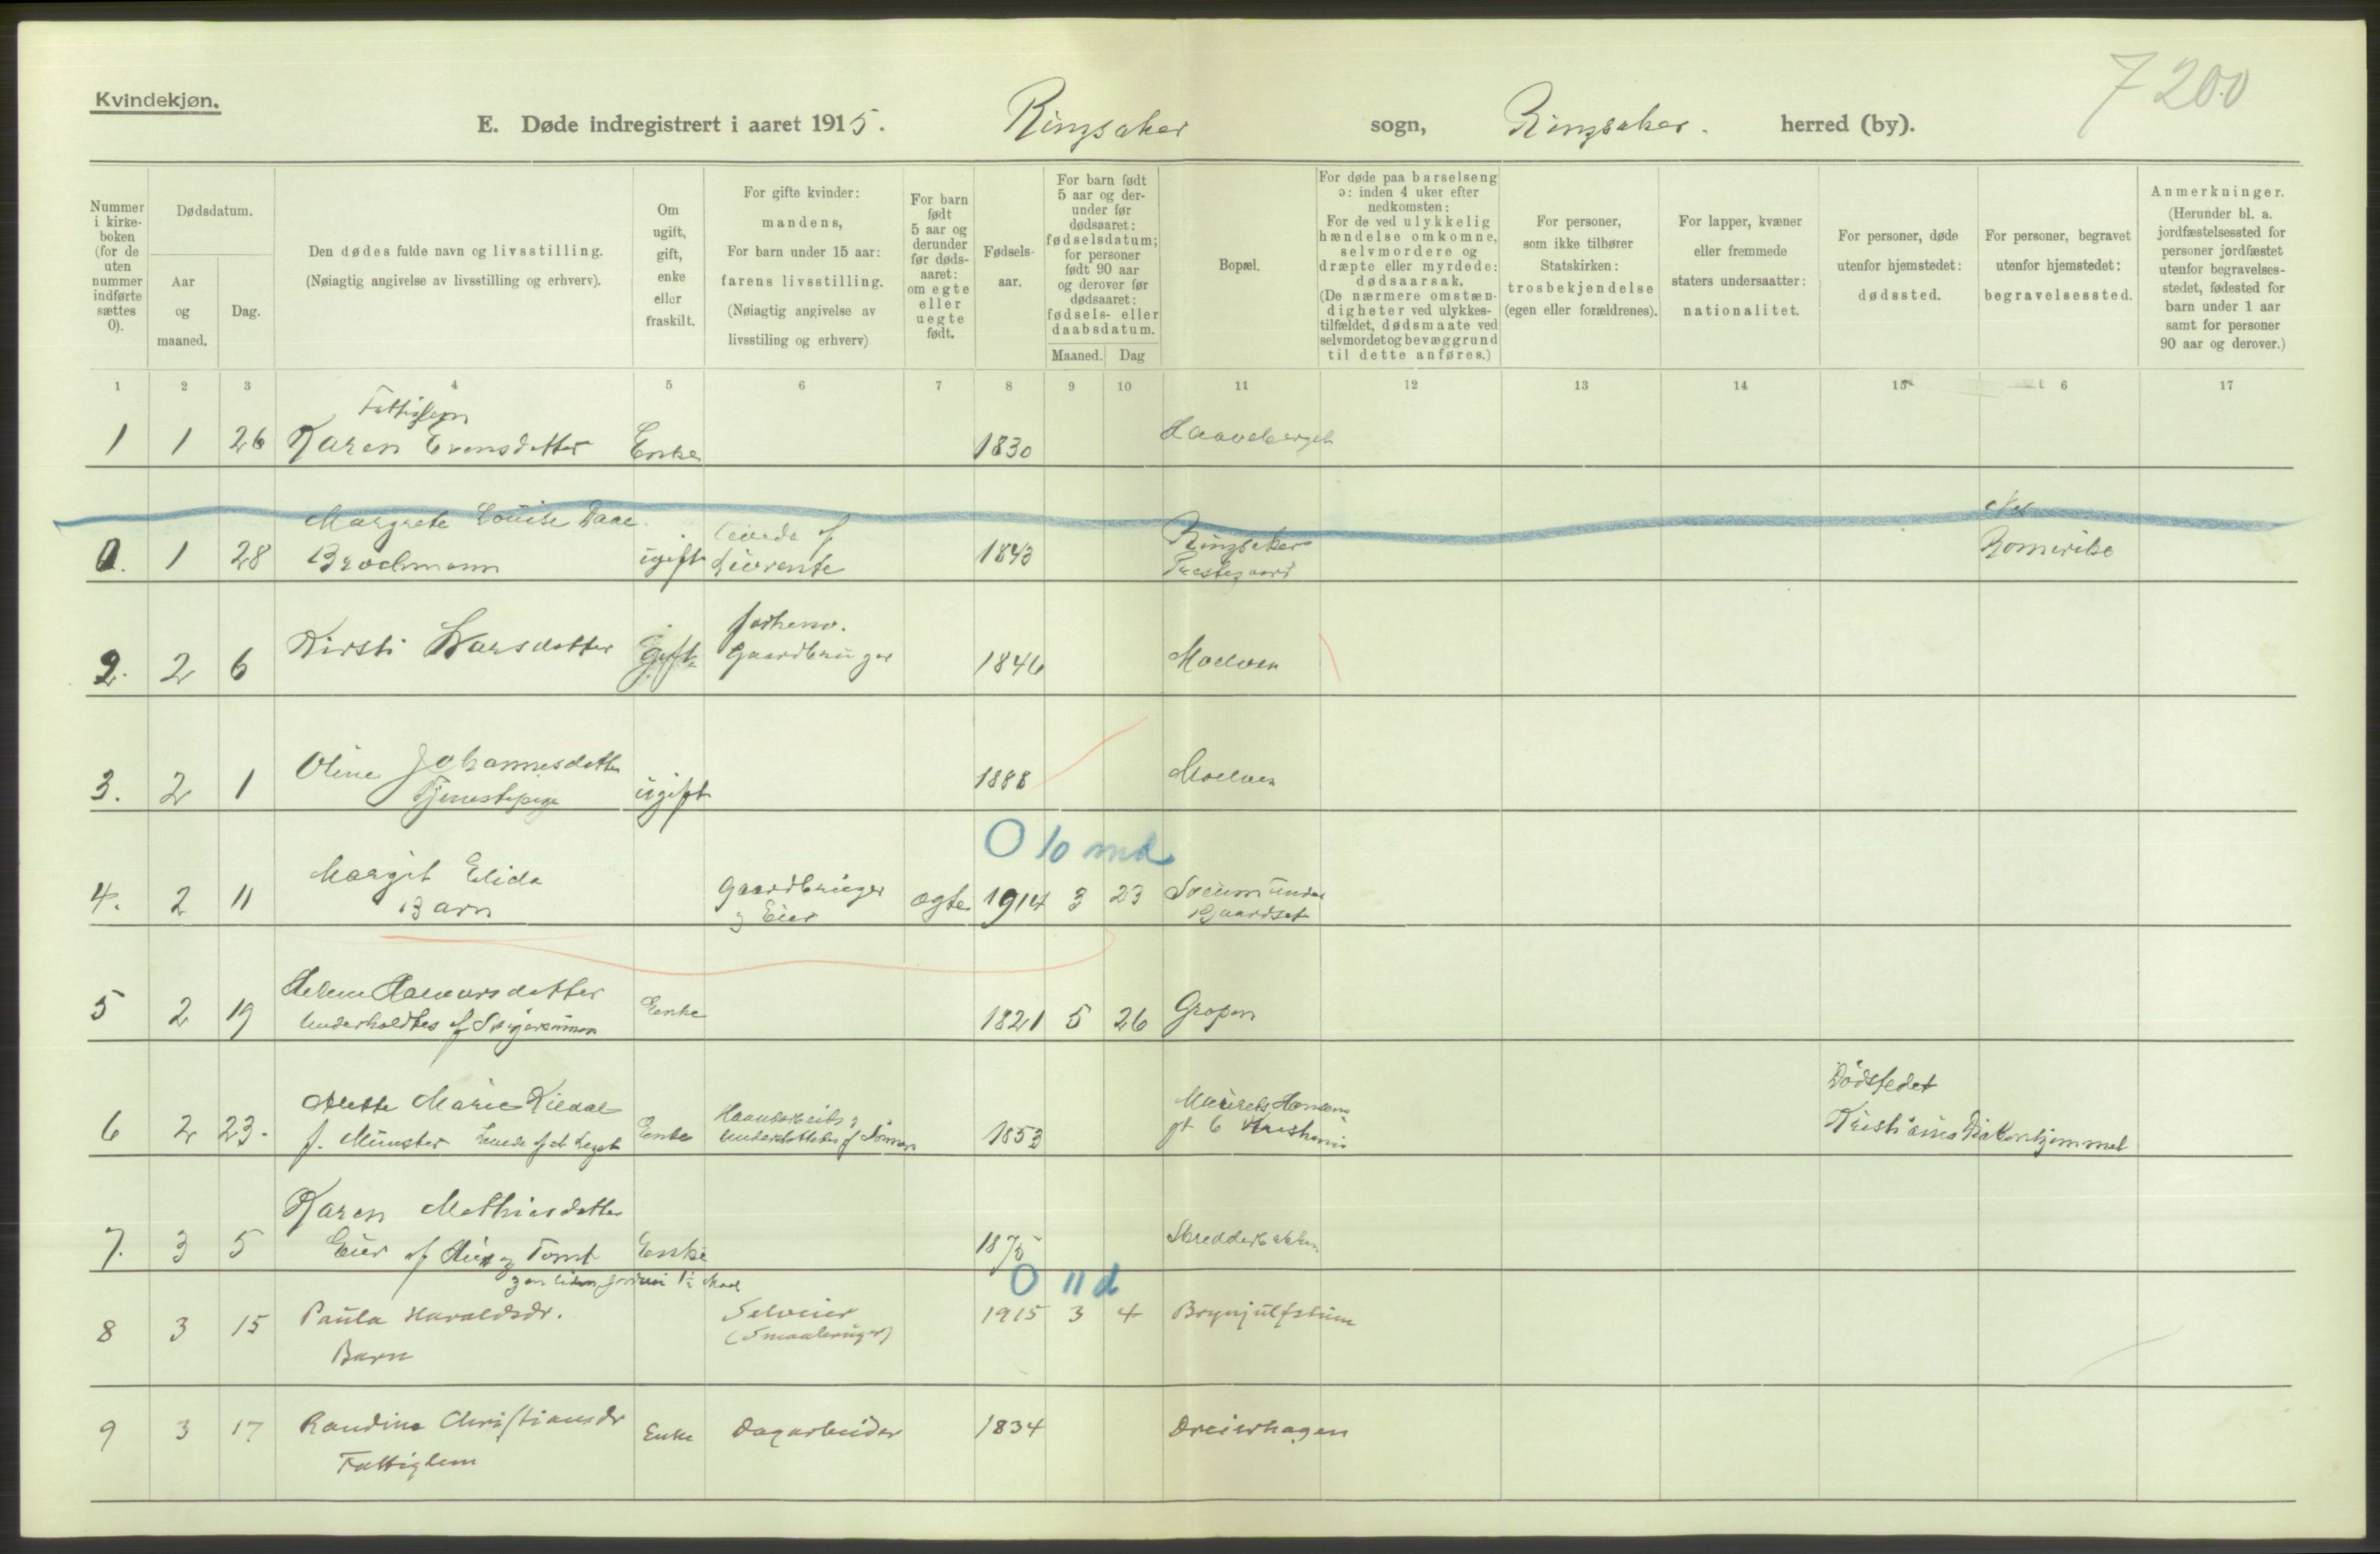 Kvindekjøn.
7 200
E. Døde indregistrert i aaret 1915. Ringsaker sogn, Ringsaker. herred (by).
Nummer i kirke-boken (for de uten nummer indførte sættes 0).
Dødsdatum.
Aar og maaned.
Dag.
Den dødes fulde navn og livsstilling.
(Nøiagtig angivelse av livsstilling og erhverv).
Om ugift, gift, enke eller fraskilt.
For gifte kvinder: mandens,
For barn under 15 aar: farens livsstilling.
(Nøiagtig angivelse av livsstiling og erhverv)
For barn født 5 aar og derunder før døds-aaret: om egte eller uegte født.
Fødsels-aar.
For barn født 5 aar og der-under før dødsaaret: fødselsdatum; for personer født 90 aar og derover før dødsaaret: fødsels- eller daabsdatum.
Maaned. Dag
Bopæl.
For døde paa barselseng ɔ: inden 4 uker efter nedkomsten:
For de ved ulykkelig hændelse omkomne, selvmordere og dræpte eller myrdede: dødsaarsak.
(De nærmere omstæn-digheter ved ulykkes-tilfældet, dødsmaate ved selvmordet og bevæggrund til dette anføres.)
For personer, som ikke tilhører Statskirken: trosbekjendelse (egen eller forældrenes).
For lapper, kvæner eller fremmede staters undersaatter: nationalitet.
For personer, døde utenfor hjemstedet: dødssted.
For personer, begravet utenfor hjemstedet: begravelsessted.
Anmerkninger.
(Herunder bl. a. jordfæstelsessted for personer jordfæstet utenfor begravelses-stedet, fødested for barn under 1 aar samt for personer 90 aar og derover.)
1 2 3 4 5 6 7 8 9 10 11 12 13 14 15 6 17
Fattiglem
1 1 26 Karen Evensdatter Enke 1830
Margrete Louise Daae Nes
0. 1 28 Brochmann ugift Levede af Livrente 1843 Ringsaker Præstegaard Romerike
forhenv.
2. 2 6 Kirsti Larsdatter Gift Gaardbruger 1846 Moelven
3. 2 1 Oline Johannesdatter ugift 1888 Moelven
Tjenestepige
0 10 md
4. 2 11 Margit Elida Gaardbruger ægte 1914 3 23
Barn og Eier
5 2 19 Enke 1821 5 26 Gropen
Underholdtes af
Dødsstedet
6 2 23. Marie Kildal Enke 1853 Kristiania Diakonhjemmet
f. Münster
7. 3 5 Karen Mathiasdatter Enke 1875 Skredderbakken
Eier af Hus og Tomt
0 11 d
8 3 15 Paula Haraldsdr. Selveier 1915 3 4 Brynjulfstuen
Barn (Smaabruger)
9 3 17 Randine Christiansdr Enke Dagarbeider 1834 Dreierhagen
Fattiglem